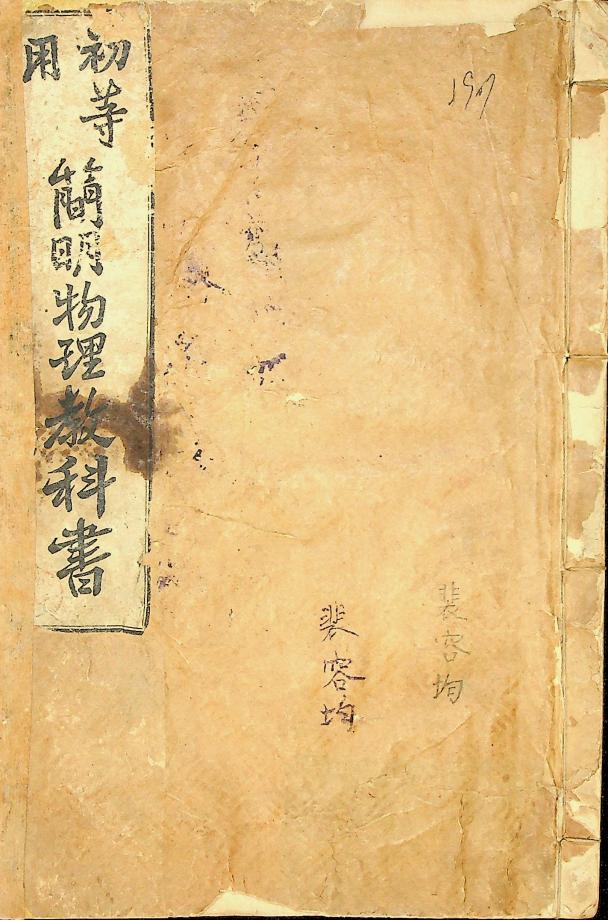 初等用
簡明物理教科書
裴容均
裴容均